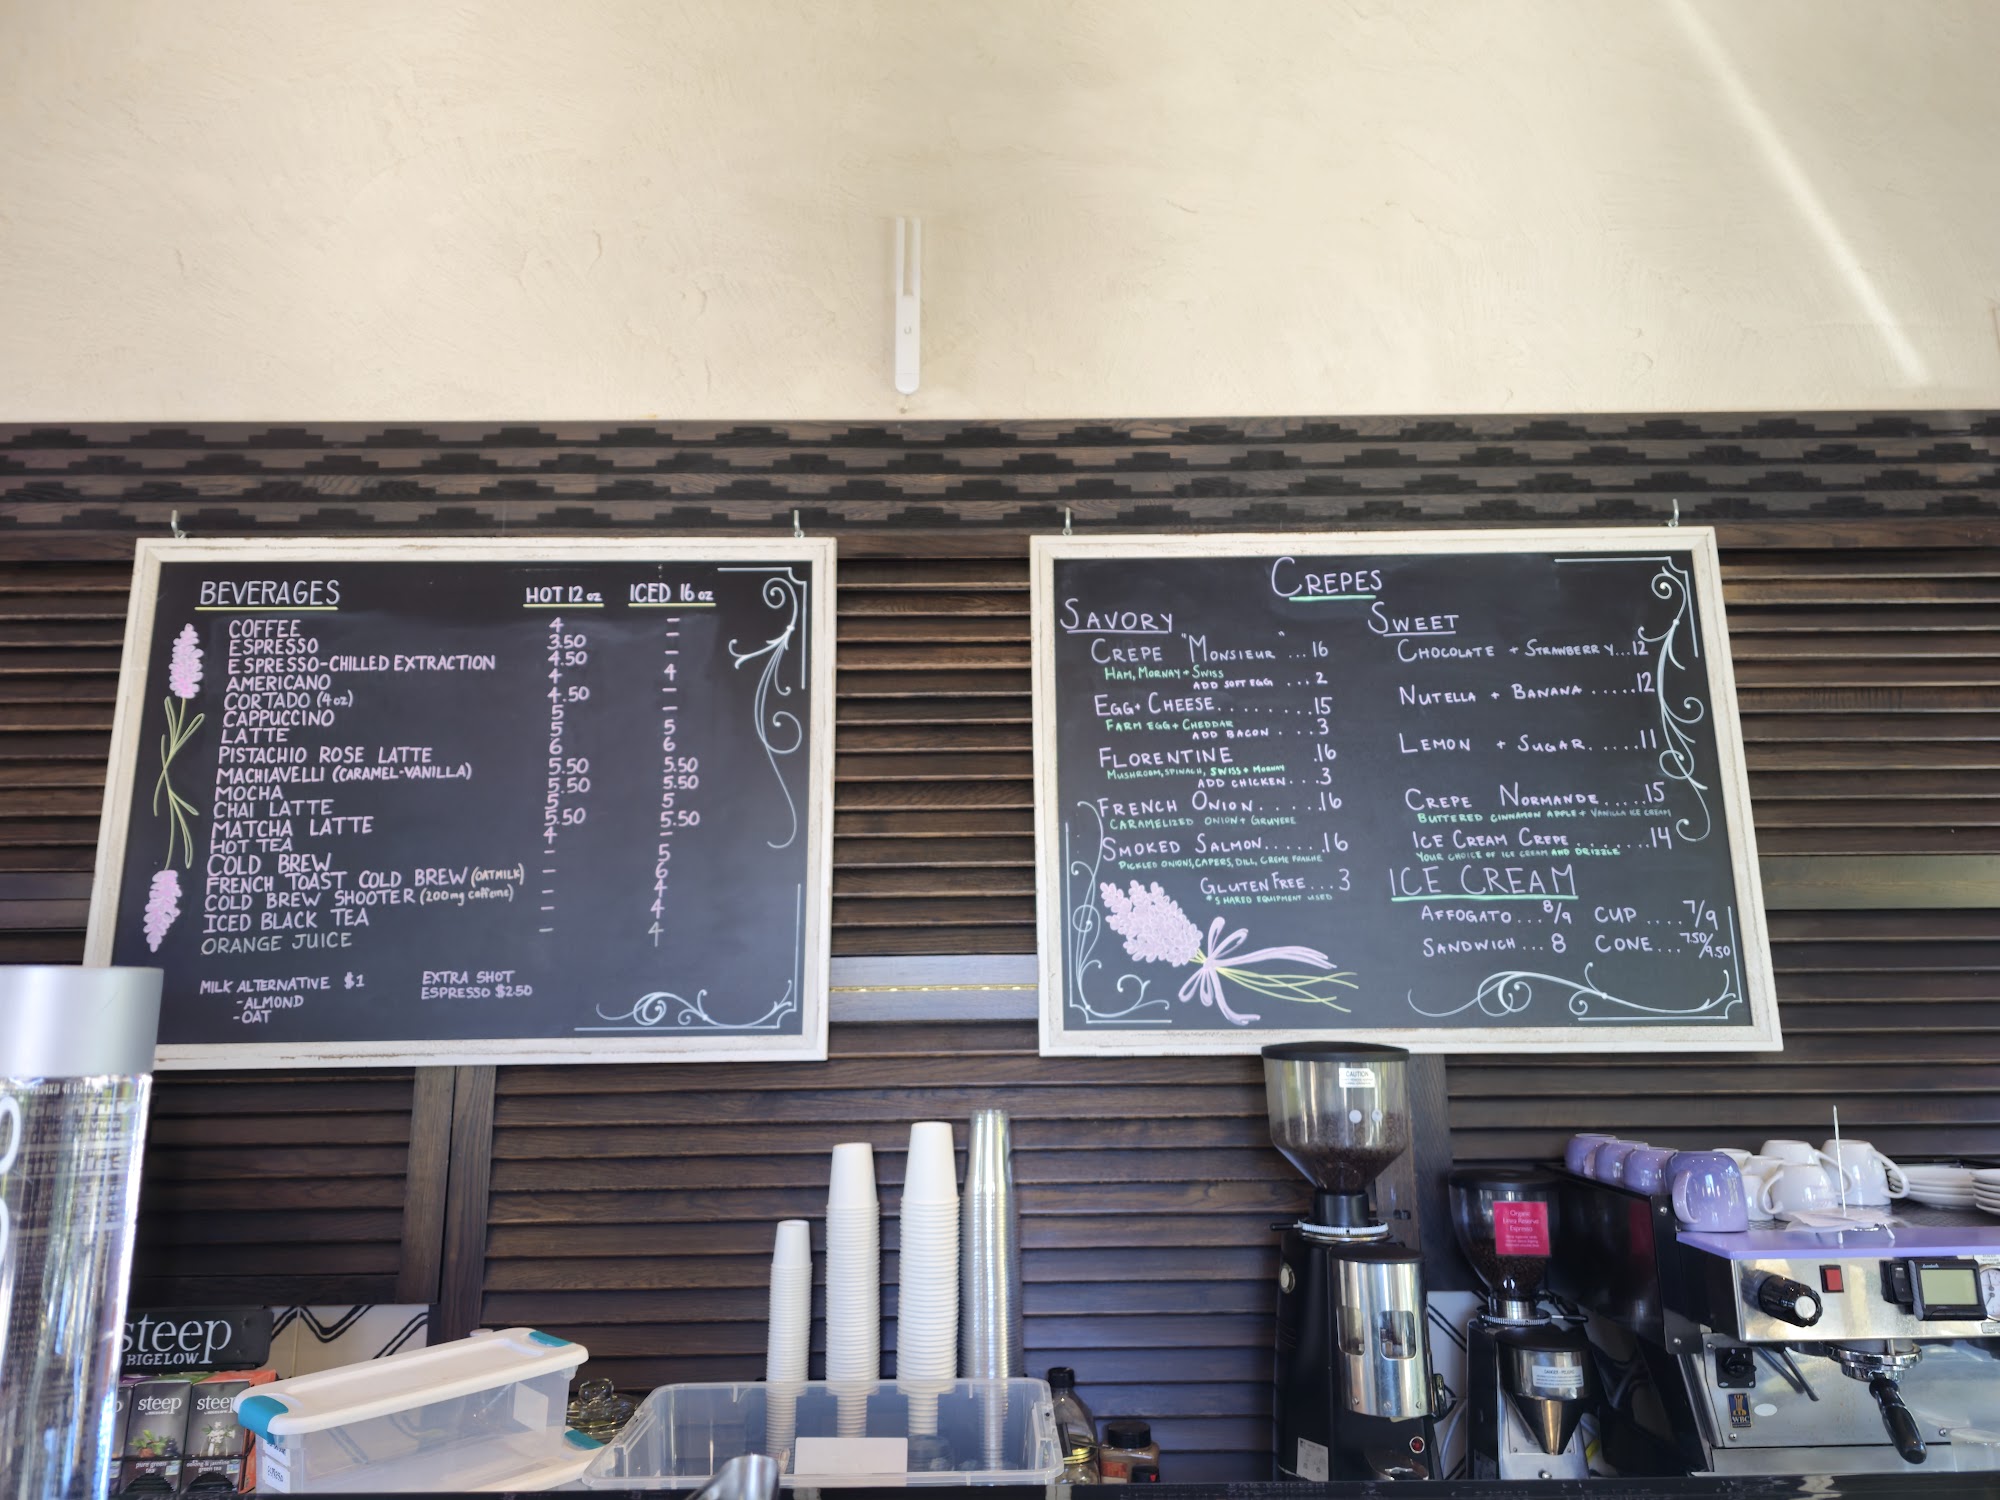 BEVERAGES HOT 12 oz ICED 16 oz
COFFEE 4 –
ESPRESSO 3.50 –
ESPRESSO-CHILLED EXTRACTION 4.50 –
AMERICANO 4 4
CORTADO (4oz) 4.50 –
CAPPUCCINO 5 –
LATTE 5 5
PISTACHIO ROSE LATTE 6 6
MACHIAVELLI (CARAMEL-VANILLA) 5.50 5.50
MOCHA 5.50 5.50
CHAI LATTE 5 5
MATCHA LATTE 5.50 5.50
HOT TEA 4 –
COLD BREW – 5
FRENCH TOAST COLD BREW (OATMILK) – 6
COLD BREW SHOOTER (200mg caffeine) – 4
ICED BLACK TEA – 4
ORANGE JUICE – 4
MILK ALTERNATIVE $1
-ALMOND
-OAT
EXTRA SHOT
ESPRESSO $2.50
CREPES
SAVORY
CREPE "MONSIEUR" ...16
HAM, MORNAY + SWISS
ADD SOFT EGG ...2
EGG + CHEESE........15
FARM EGG + CHEDDAR
ADD BACON...3
FLORENTINE .16
MUSHROOM, SPINACH, SWISS + MORNAY
ADD CHICKEN...3
FRENCH ONION......16
CARAMELIZED ONION + GRUYERE
SMOKED SALMON......16
PICKLED ONIONS, CAPERS, DILL, CREME FRAICHE
GLUTEN FREE...3
*SHARED EQUIPMENT USED
SWEET
CHOCOLATE + STRAWBERRY...12
NUTELLA + BANANA.....12
LEMON + SUGAR.....11
CREPE NORMANDE.....15
BUTTERED CINNAMON APPLE + VANILLA ICE CREAM
ICE CREAM CREPE........14
YOUR CHOICE OF ICE CREAM AND DRIZZLE
ICE CREAM
AFFOGATO...8/9 CUP....7/9
SANDWICH...8 CONE...7.50/9.50
steep
BIGELOW
steep
pure green tea
CAUTION
Organic
Espresso
WBC